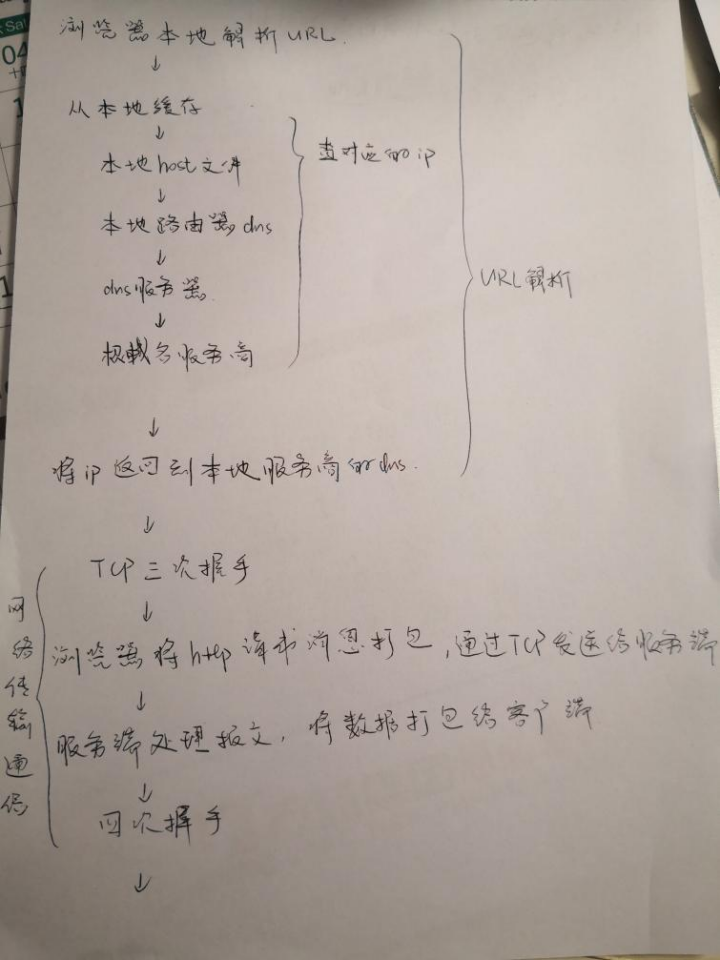 浏览器本地解析URL.
从本地缓存
本地host文件
本地路由器dns
dns服务器
根域名服务商
查对应的ip
URL解析
将ip返回到本地服务商的dns.
TCP三次握手
浏览器将http请求消息打包,通过TCP发送给服务端
服务端处理报文,将数据打包给客户端
四次握手
网络传输通信
Sat
04